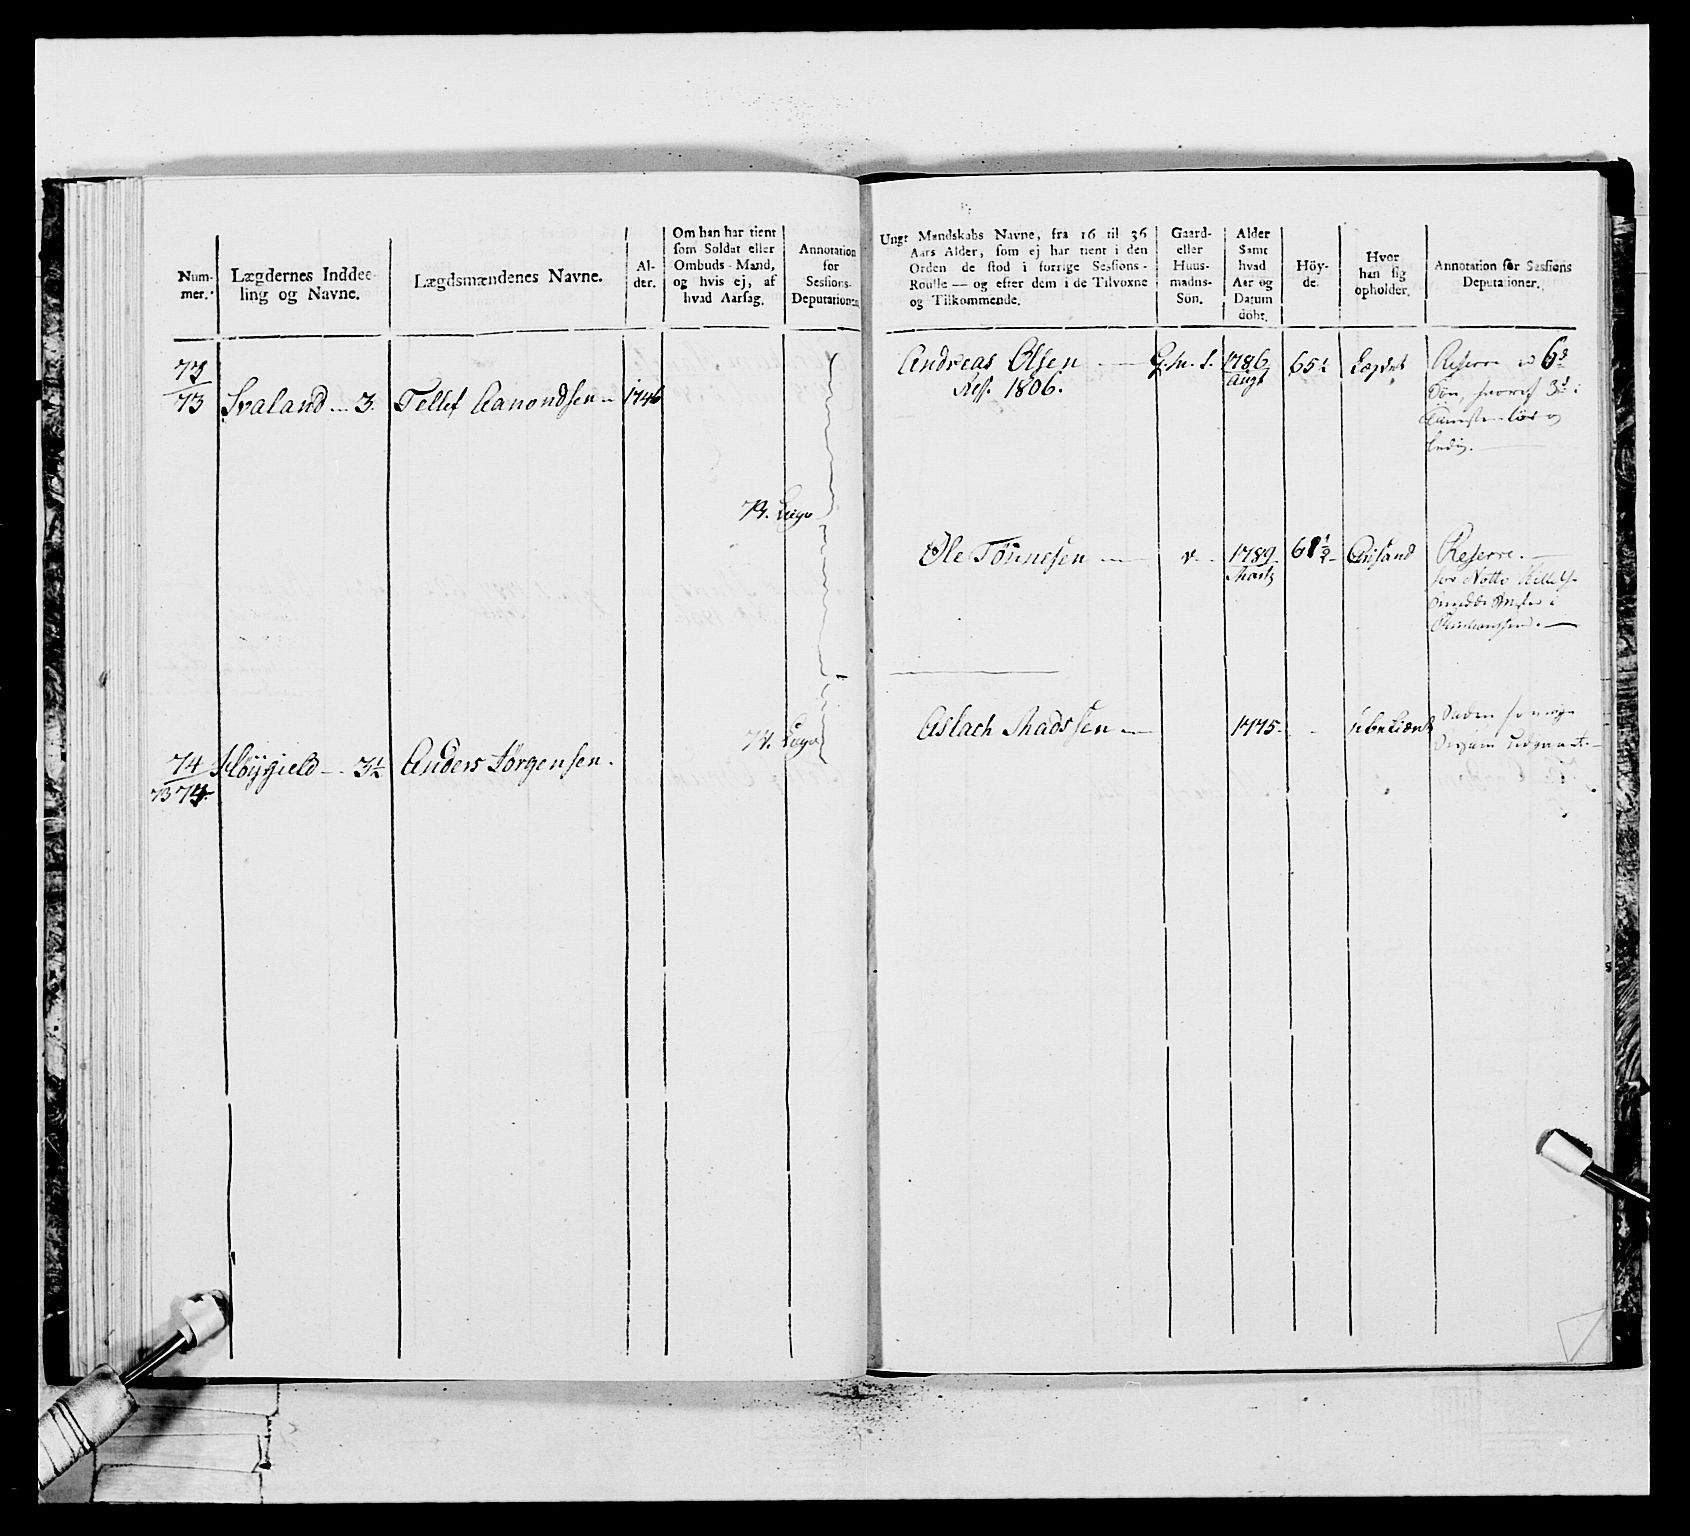 Num-
mer.
Lægdernes Inddee-
ling og Navne.
Lægdsmændenes Navne.
Al-
der.
Om han har tient
som Soldat eller
Ombuds-Mand,
og hvis ej, af
hvad Aarsag.
Annotation
for
Sessions-
Deputationen.
73
73
Svaland 3.
Tellef Aanondsen
1746
73. Lægd
74
73 74.
Høygield 3½
Anders Jørgensen.
74. Lægd
Ungt Mandskabs Navne, fra 16 til 36
Aars Alder, som ej har tient i den
Orden de stod i forrige Sessions-
Roulle — og efter dem i de Tilvoxne
og Tilkommende.
Gaard-
eller
Huus-
mands-
Søn.
Alder
Samt
hvad
Aar og
Datum
døbt.
Höy-
de.
Hvor
han sig
opholder.
Annotation for Sessions
Deputationer.
Andreas Olsen
Res. 1806.
G. m. S.
1786
Augt
65½
Lægdet
Reserve
Ole Tørresen
1789
Martz
61½
Reserve.
for
Aslach Madssen
1775
ubekiendt